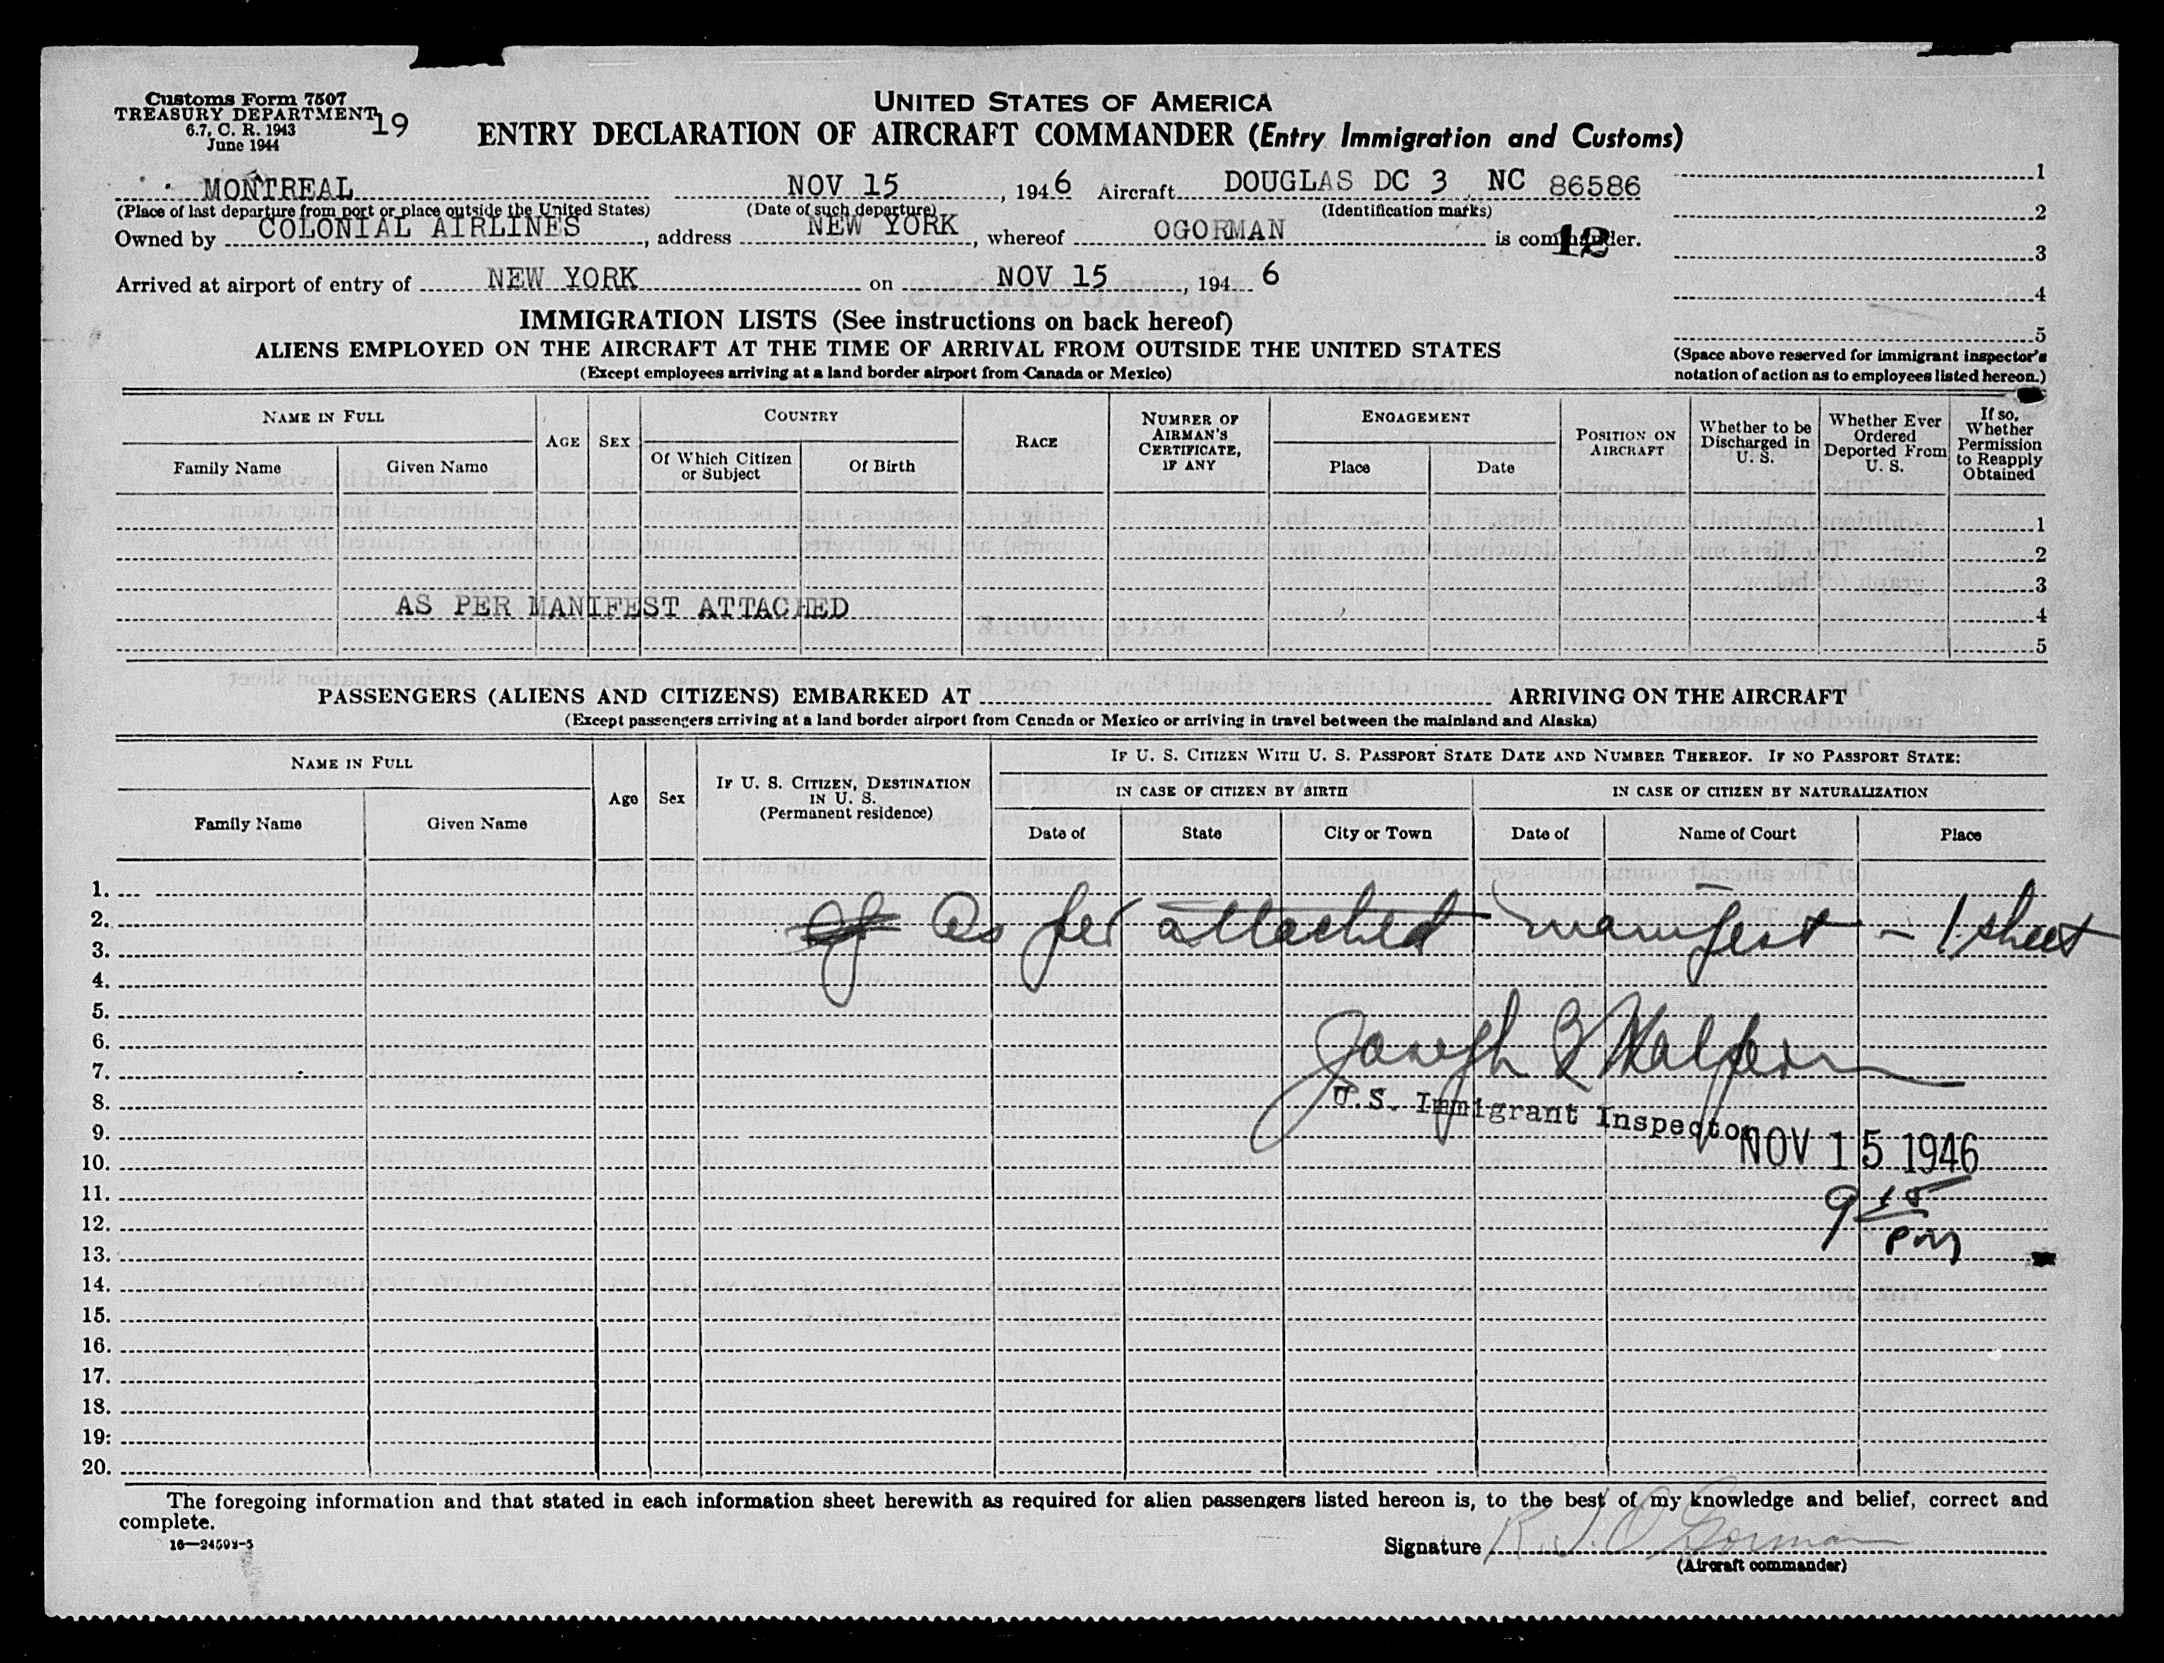 Customs Form 7507
TREASURY DEPARTMENT
6.7, C. R. 1943
June 1944
19
UNITED STATES OF AMERICA
ENTRY DECLARATION OF AIRCRAFT COMMANDER (Entry Immigration and Customs)
MONTREAL NOV 15, 1946 Aircraft DOUGLAS DC 3 NC 86586
(Place of last departure from port or place outside the United States) (Date of such departure) (Identification marks)
Owned by COLONIAL AIRLINES, address NEW YORK, whereof OGORMAN is commander.
12
Arrived at airport of entry of NEW YORK on NOV 15, 194 6
1
2
3
4
5
(Space above reserved for immigrant inspector's
notation of action as to employees listed hereon.)
IMMIGRATION LISTS (See instructions on back hereof)
ALIENS EMPLOYED ON THE AIRCRAFT AT THE TIME OF ARRIVAL FROM OUTSIDE THE UNITED STATES
(Except employees arriving at a land border airport from Canada or Mexico)
NAME IN FULL
Family Name
Given Name
AGE
SEX
COUNTRY
Of Which Citizen
or Subject
Of Birth
RACE
NUMBER OF
AIRMAN'S
CERTIFICATE,
IF ANY
ENGAGEMENT
Place
Date
POSITION ON
AIRCRAFT
Whether to be
Discharged in
U. S.
Whether Ever
Ordered
Deported From
U. S.
If so,
Whether
Permission
to Reapply
Obtained
1
2
3
AS PER MANIFEST ATTACHED 4
5
PASSENGERS (ALIENS AND CITIZENS) EMBARKED AT ARRIVING ON THE AIRCRAFT
(Except passengers arriving at a land border airport from Canada or Mexico or arriving in travel between the mainland and Alaska)
NAME IN FULL
Family Name
Given Name
Age
Sex
IF U. S. CITIZEN, DESTINATION
IN U. S.
(Permanent residence)
IF U. S. CITIZEN WITH U. S. PASSPORT STATE DATE AND NUMBER THEREOF. IF NO PASSPORT STATE:
IN CASE OF CITIZEN BY BIRTH
Date of
State
City or Town
IN CASE OF CITIZEN BY NATURALIZATION
Date of
Name of Court
Place
1.
2. As per attached manifest - 1 sheet
3.
4.
5.
6.
7. Joseph
8. U.S. Immigrant Inspector
9.
10. NOV 15 1946
11. 9 15
12. pm
13.
14.
15.
16.
17.
18.
19.
20.
The foregoing information and that stated in each information sheet herewith as required for alien passengers listed hereon is, to the best of my knowledge and belief, correct and
complete.
16—24598-5
Signature R. J. O'Gorman
(Aircraft commander)